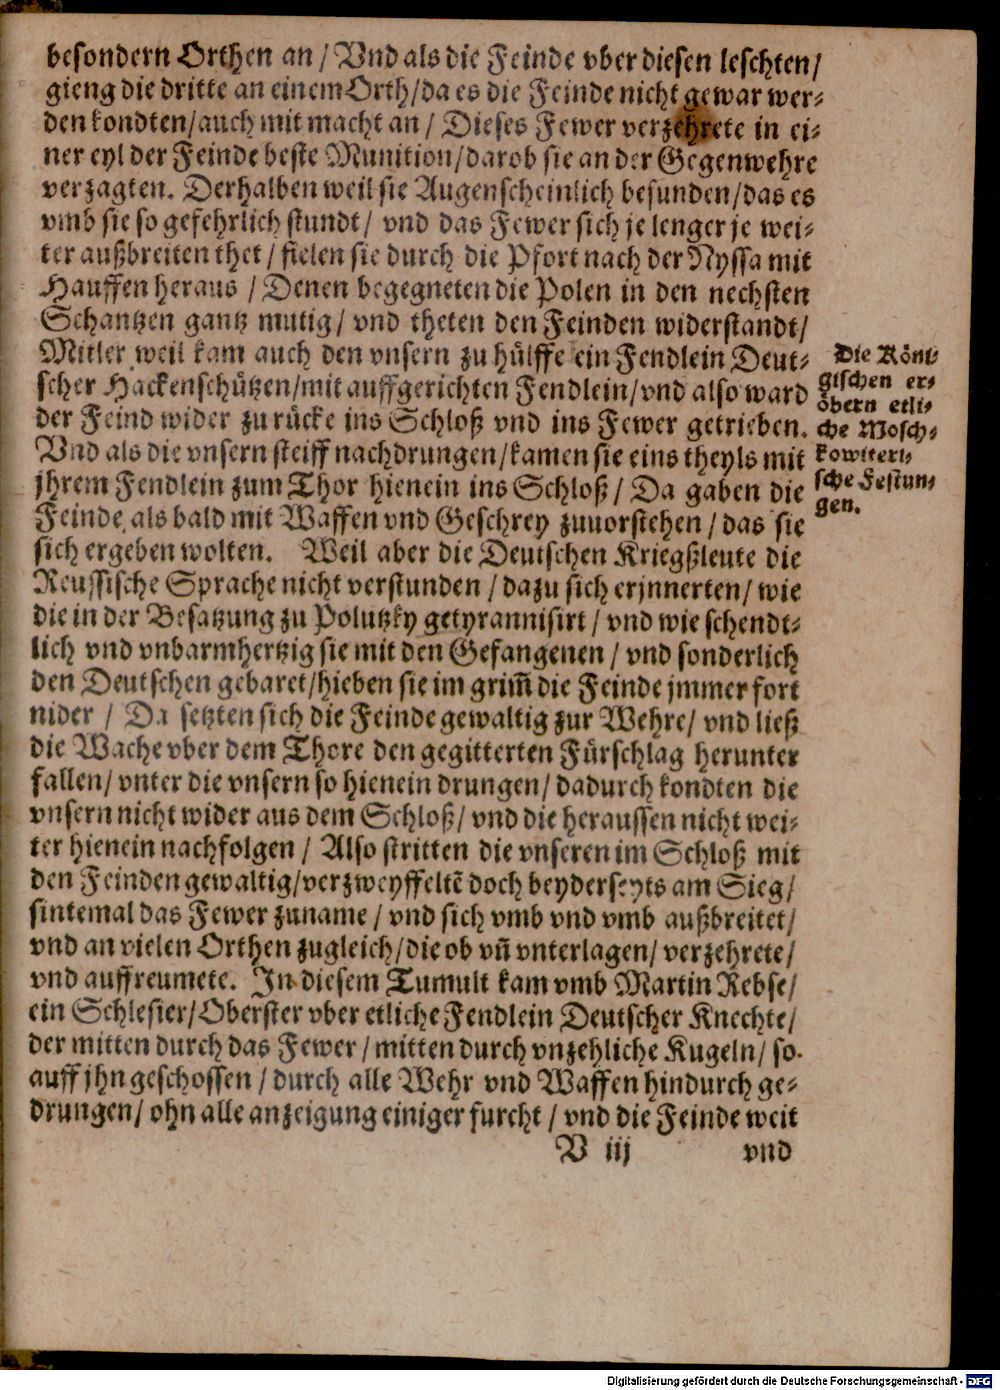 besondern Orthen an / Vnd als die Feinde vber diesen leschten /
gieng die dritte an einem Orth / da es die Feinde nicht gewar wer⸗
den kondten / auch mit macht an / Dieses Fewer verzehrete in ei⸗
ner eyl der Feinde beste Munition / darob sie an der Gegenwehre
verzagten. Derhalben weil sie Augenscheinlich befunden / das es
vmb sie so gefehrlich stundt / vnd das Fewer sich je lenger je wei⸗
ter außbreiten thet / fielen sie durch die Pfort nach der Nyssa mit
Hauffen heraus / Denen begegneten die Polen in den nechsten
Schantzen gantz mutig / vnd theten den Feinden widerstandt /
Mitler weil kam auch den vnsern zu hülffe ein Fendlein Deut⸗
scher Hackenschützen / mit auffgerichten Fendlein / vnd also ward
der Feind wider zu rücke ins Schloß vnd ins Fewer getrieben.
Vnd als die vnsern steiff nachdrungen / kamen sie eins theyls mit
jhrem Fendlein zum Thor hienein ins Schloß / Da gaben die
Feinde als bald mit Waffen vnd Geschrey zuuorstehen / das sie
sich ergeben wolten. Weil aber die Deutschen Kriegßleute die
Reussische Sprache nicht verstunden / dazu sich erjnnerten / wie
die in der Besatzung zu Polutzky getyrannisirt / vnd wie schendt⸗
lich vnd vnbarmhertzig sie mit den Gefangenen / vnd sonderlich
den Deutschen gebaret / hieben sie im grim̄ die Feinde jmmer fort
nider / Da setzten sich die Feinde gewaltig zur Wehre / vnd ließ
die Wache vber dem Thore den gegitterten Fürschlag herunter
fallen / vnter die vnsern so hienein drungen / dadurch kondten die
vnsern nicht wider aus dem Schloß / vnd die heraussen nicht wei⸗
ter hienein nachfolgen / Also stritten die vnseren im Schloß mit
den Feinden gewaltig / verzweyffeltē doch beyderseyts am Sieg /
sintemal das Fewer zuname / vnd sich vmb vnd vmb außbreitet /
vnd an vielen Orthen zugleich / die ob vn̄ vnterlagen / verzehrete /
vnd auffreumete. In diesem Tumult kam vmb Martin Rebse /
ein Schlesier / Oberster vber etliche Fendlein Deutscher Knechte /
der mitten durch das Fewer / mitten durch vnzehliche Kugeln / so
auff jhn geschossen / durch alle Wehr vnd Waffen hindurch ge⸗
drungen / ohn alle anzeigung einiger furcht / vnd die Feinde weit
V iij vnd
Die Köni⸗
gischen er⸗
obern etli⸗
che Mosch⸗
kowiteri⸗
sche Festun⸗
gen.
Digitalisierung gefördert durch die Deutsche Forschungsgemeinschaft - DFG